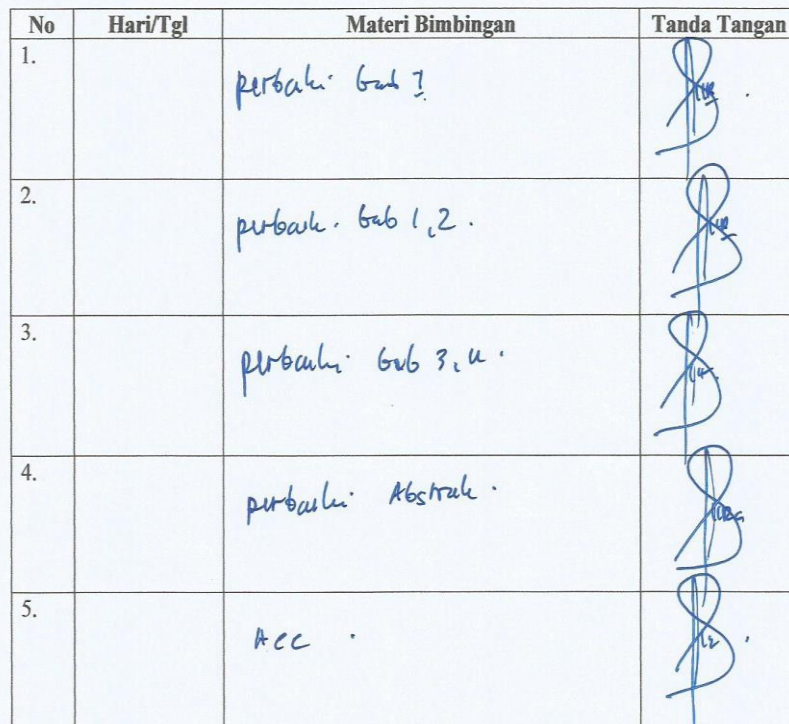 No Hari/Tgl Materi Bimbingan Tanda Tangan
1.
perbaiki bab 1
2.
perbaiki bab 1,2.
3.
perbaiki bab 3,4.
4.
perbaiki Abstrak.
5.
Acc.